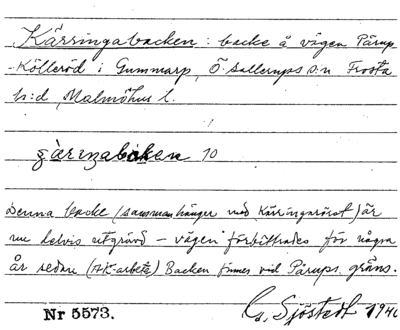 Kärringabacken: backe å vägen Pärup
-Kölleröd i Gummarp, Ö. Sallerups s:n Frosta
h:d, Malmöhus l.
10
Denna backe (sammanhänger med Kärringaröset) är
nu delvis utgrävd – vägen förbättrades för några
år sedan (AK-arbete) Backen finnes vid Pärups gräns.
Nr 5573. G. Sjöstedt 1940